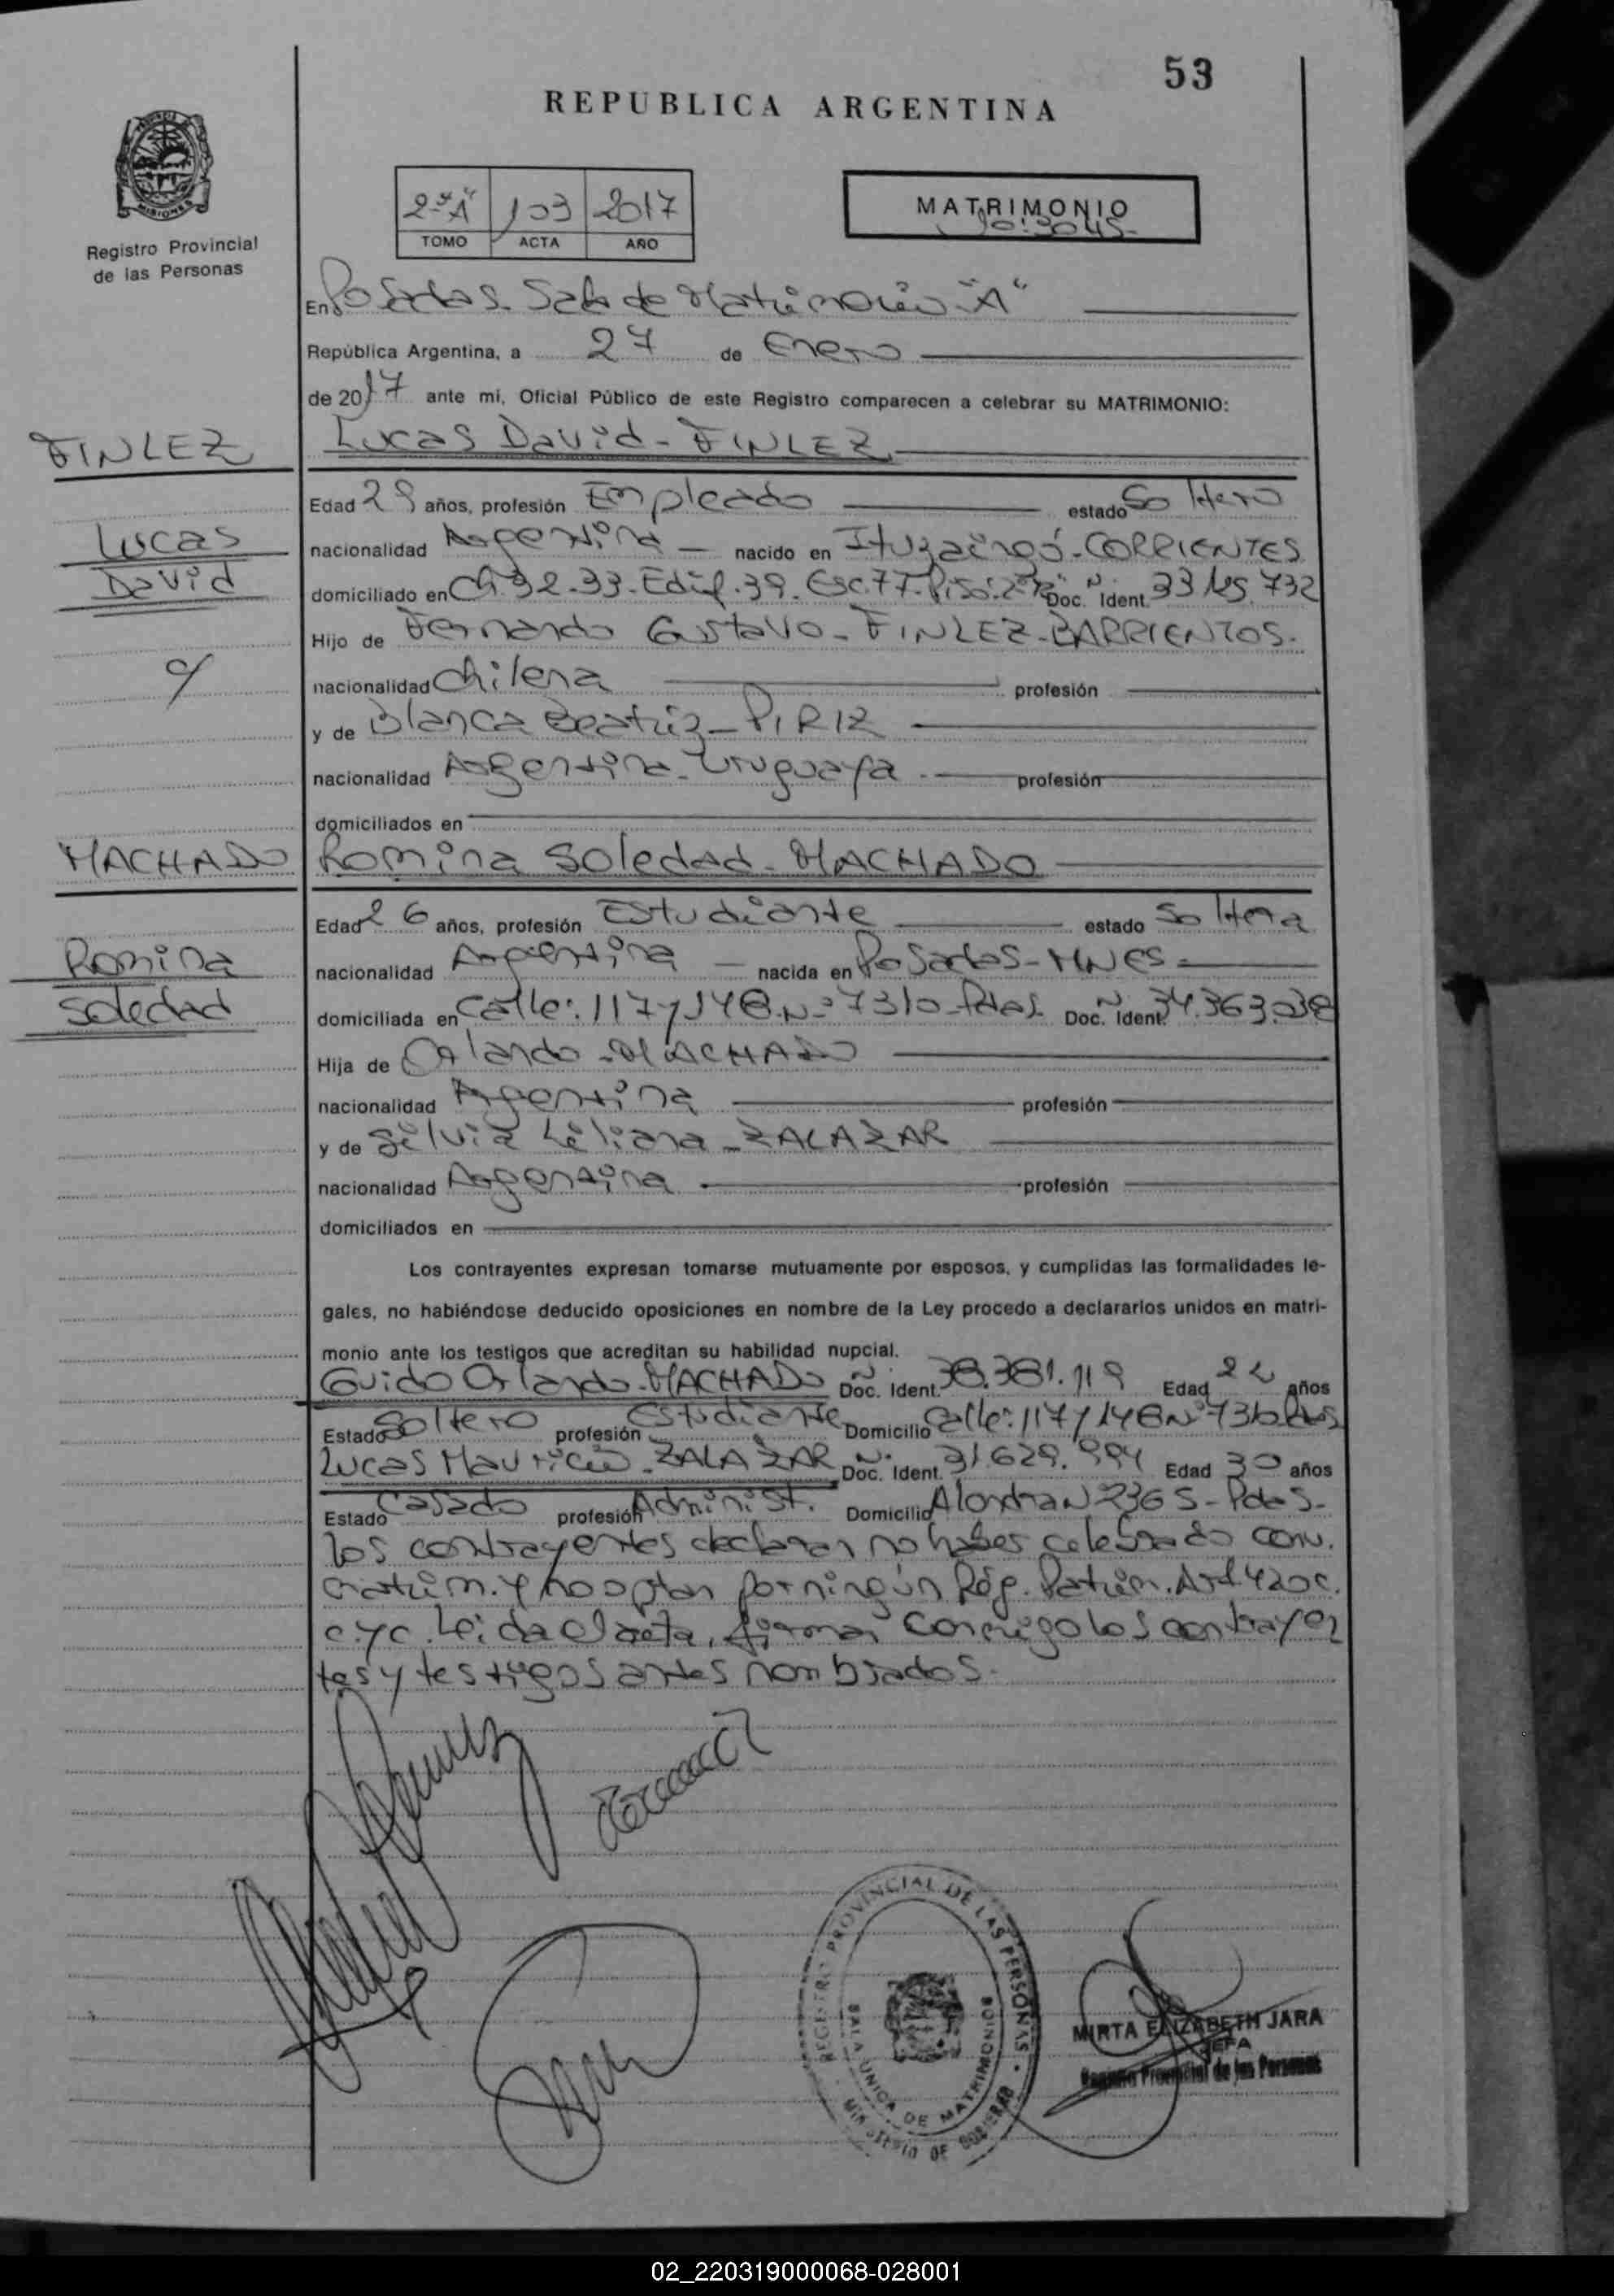 53
REPUBLICA ARGENTINA
MISIONES
Registro Provincial
de las Personas
2º "A" 103 2017
TOMO ACTA AÑO
MATRIMONIO
En Posadas. Sala de Matrimonio "A"
República Argentina, a 27 de Enero
de 2017 ante mí, Oficial Público de este Registro comparecen a celebrar su MATRIMONIO:
FINLEZ
Lucas David - FINLEZ
Edad 29 años, profesión Empleado estado Soltero
Lucas
nacionalidad Argentina nacido en Ituzaingó - CORRIENTES
David
domiciliado en Ch. 32-33. Edif. 39. Esc. 77. Piso. 2º Doc. Ident. 33.125.732
Hijo de Fernando Gustavo - FINLEZ - BARRIENTOS.
c/
nacionalidad Chilena profesión
y de Blanca Beatriz - PIRIZ
nacionalidad Argentina - Uruguaya profesión
domiciliados en
MACHADO
Romina Soledad - MACHADO
Edad 26 años, profesión Estudiante estado Soltera
Romina
nacionalidad Argentina nacida en Posadas - MNES
Soledad
domiciliada en Calle: 117 y 148. Nº 7310 - Pdas. Doc. Ident. Nº 34.363.038
Hija de Orlando - MACHADO
nacionalidad Argentina profesión
y de Silvia Liliana - ZALAZAR
nacionalidad Argentina profesión
domiciliados en
Los contrayentes expresan tomarse mutuamente por esposos, y cumplidas las formalidades le-
gales, no habiéndose deducido oposiciones en nombre de la Ley procedo a declararlos unidos en matri-
monio ante los testigos que acreditan su habilidad nupcial.
Guido Orlando - MACHADO Doc. Ident. Nº 38.381.119 Edad 22 años
Estado Soltero profesión Estudiante Domicilio Calle: 117 y 148 Nº 7310 Pdas
Lucas Mauricio - ZALAZAR Doc. Ident. Nº 31.629.994 Edad 30 años
Estado Casado profesión Administ. Domicilio Alondra Nº 2365 - Pdas -
Los contrayentes declaran no haber celebrado conv.
matrim. y no optan por ningún Rég. Patrim. Art. 420 c.
c.y c. Leida el acta, firman conmigo los contrayen
tes y testigos antes nombrados.
REGISTRO PROVINCIAL DE LAS PERSONAS
SALA UNICA DE MATRIMONIOS
MINISTERIO DE GOBIERNO
MIRTA ELIZABETH JARA
JEFA
Registro Provincial de las Personas
02_220319000068-028001